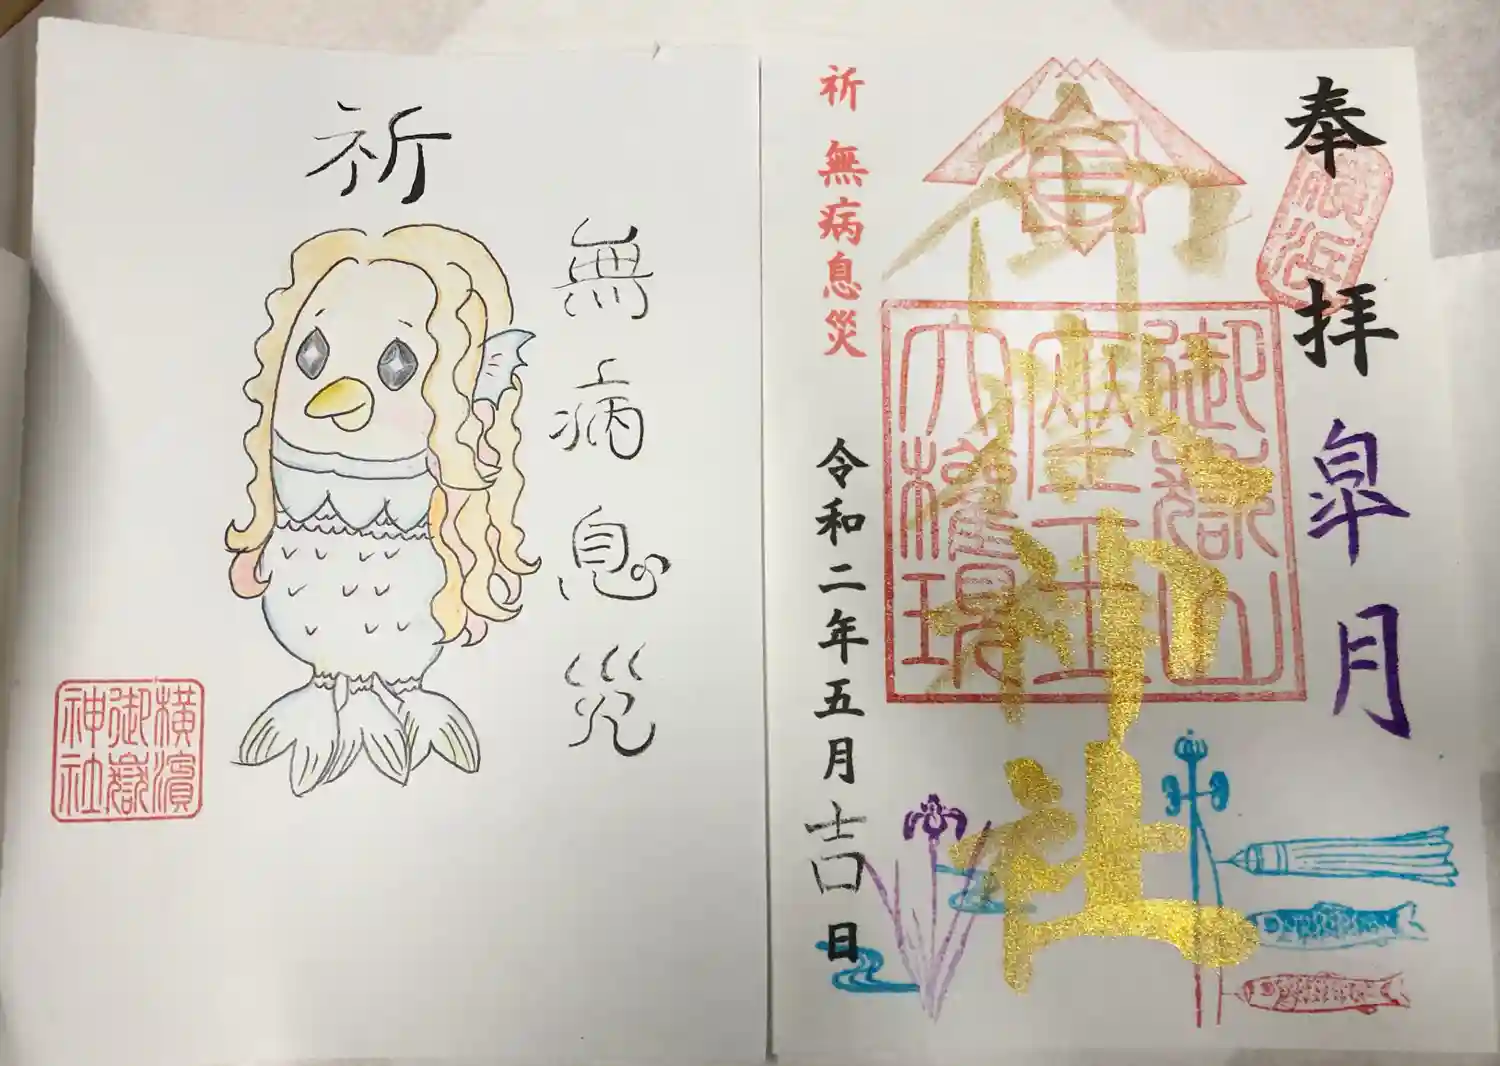 祈
無病息災
横濱
御嶽
神社
奉拝
横浜
皐月
御嶽神社
御嶽山
座王
大権現
祈 無病息災
令和二年五月吉日